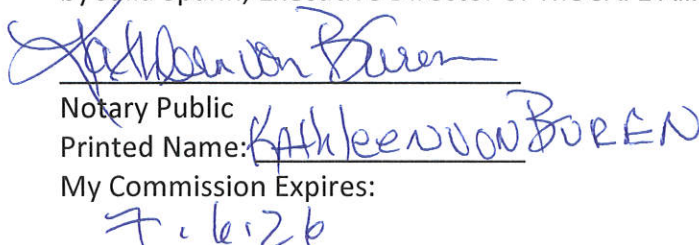 Kathleen von Buren
Notary Public
Printed Name: Kathleen von BUREN
My Commission Expires:
7.6.26